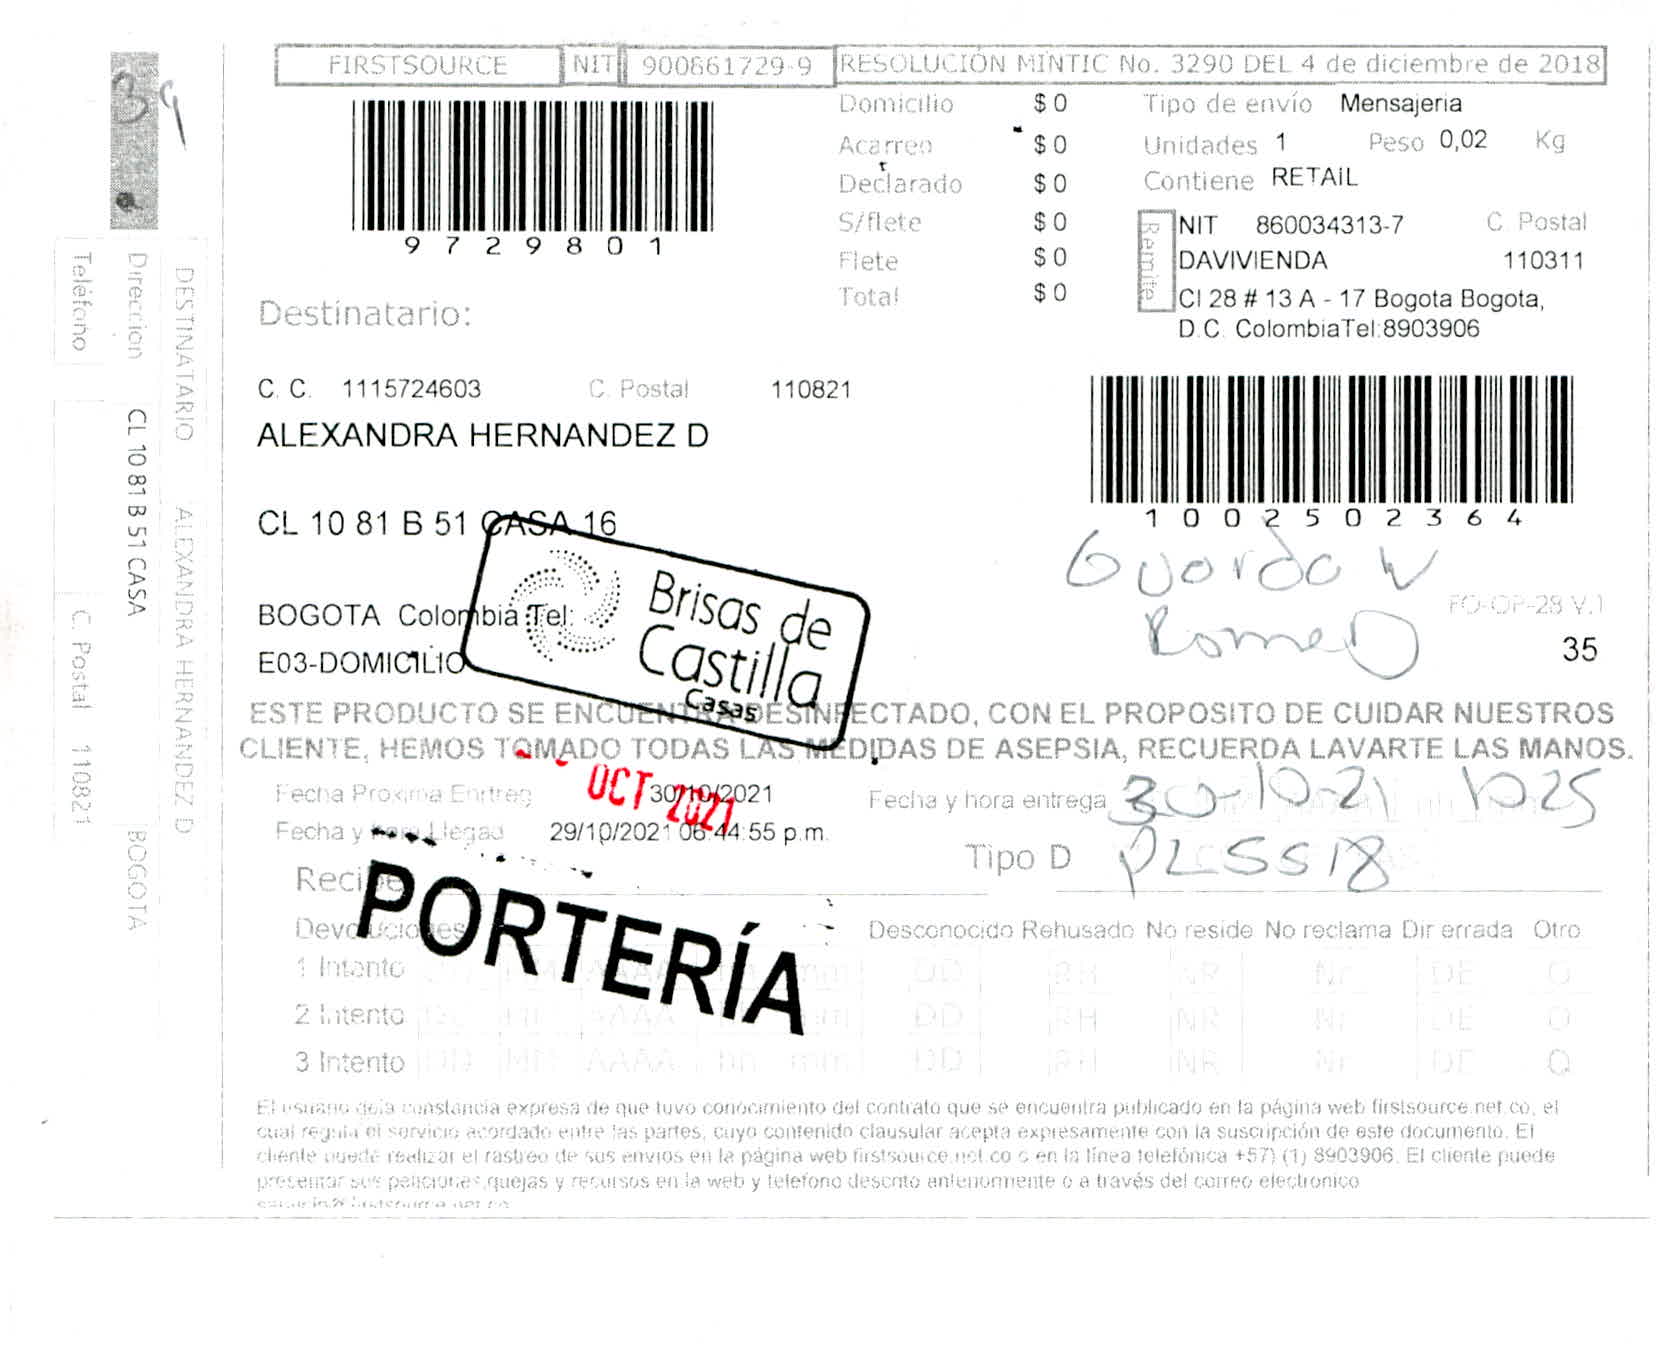 FIRSTSOURCE NIT 900861729-9 RESOLUCIÓN MINTIC No. 3290 DEL 4 de diciembre de 2018
9729801
Domicilio $ 0
Acarreo $ 0
Declarado $ 0
S/flete $ 0
Flete $ 0
Total $ 0
Tipo de envío Mensajeria
Unidades 1 Peso 0,02 Kg
Contiene RETAIL
Remite
NIT 860034313-7 C. Postal
DAVIVIENDA 110311
Cl 28 # 13 A - 17 Bogota Bogota,
D.C. ColombiaTel:8903906
Destinatario:
C. C. 1115724603 C. Postal 110821
ALEXANDRA HERNANDEZ D
1002502364
CL 10 81 B 51 CASA 16
BOGOTA Colombia Tel:
E03-DOMICILIO
Brisas de
Castilla
Casas
Guarda
Romero
FO-OP-28 V.1
35
ESTE PRODUCTO SE ENCUENTRA DESINFECTADO, CON EL PROPOSITO DE CUIDAR NUESTROS
CLIENTE, HEMOS TOMADO TODAS LAS MEDIDAS DE ASEPSIA, RECUERDA LAVARTE LAS MANOS.
Fecha Proxima Enrtreg 30/10/2021
OCT 2021
Fecha y hora Llegad 29/10/2021 06:44:55 p.m.
Fecha y hora entrega 30-10-21 1025
Tipo D PLSS18
Recibe
PORTERÍA
Devoluciones Desconocido Rehusado No reside No reclama Dir errada Otro
1 Intento DD RH NR Nr DE O
2 Intento DD MM AAAA hh mm DD RH NR Nr DE O
3 Intento DD MM AAAA hh mm DD RH NR Nr DE O
El usuario deja constancia expresa de que tuvo conocimiento del contrato que se encuentra publicado en la página web firstsource.net.co, el
cual regula el servicio acordado entre las partes, cuyo contenido clausular acepta expresamente con la suscripción de este documento. El
cliente puede realizar el rastreo de sus envios en la página web firstsource.net.co o en la línea telefónica +57) (1) 8903906. El cliente puede
presentar sus peticiones,quejas y recursos en la web y telefono descrito anteriormente o a través del correo electronico
DESTINATARIO ALEXANDRA HERNANDEZ D
Direccion CL 10 81 B 51 CASA BOGOTA
Teléfono C. Postal 110821